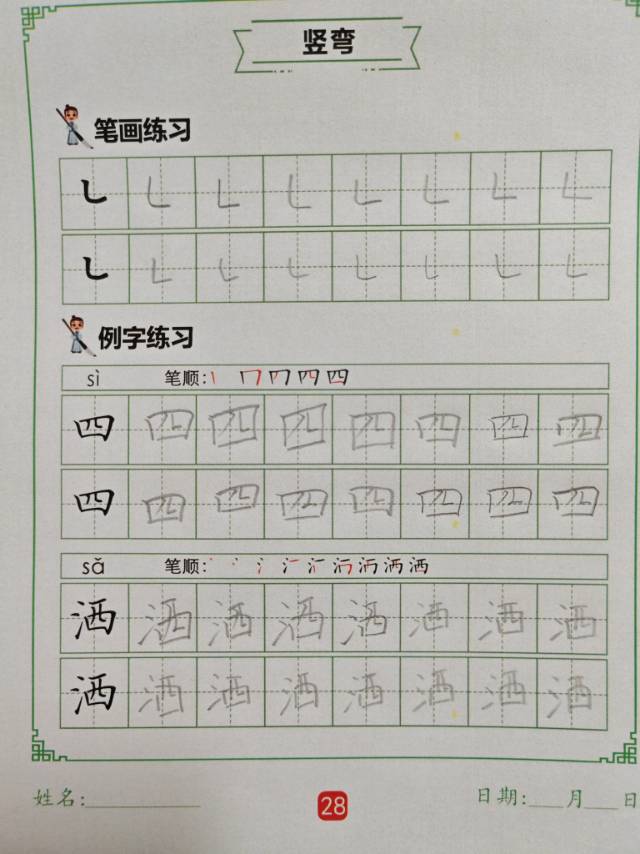 竖弯
笔画练习
㇄ ㇄ ㇄ ㇄ ㇄ ㇄ ㇄ ㇄
㇄ ㇄ ㇄ ㇄ ㇄ ㇄ ㇄ ㇄
例字练习
sì 笔顺:
四 四 四 四 四 四 四 四
四 四 四 四 四 四 四 四
sǎ 笔顺:
洒 洒 洒 洒 洒 洒 洒 洒
洒 洒 洒 洒 洒 洒 洒 洒
姓名: 28 日期: 月 日